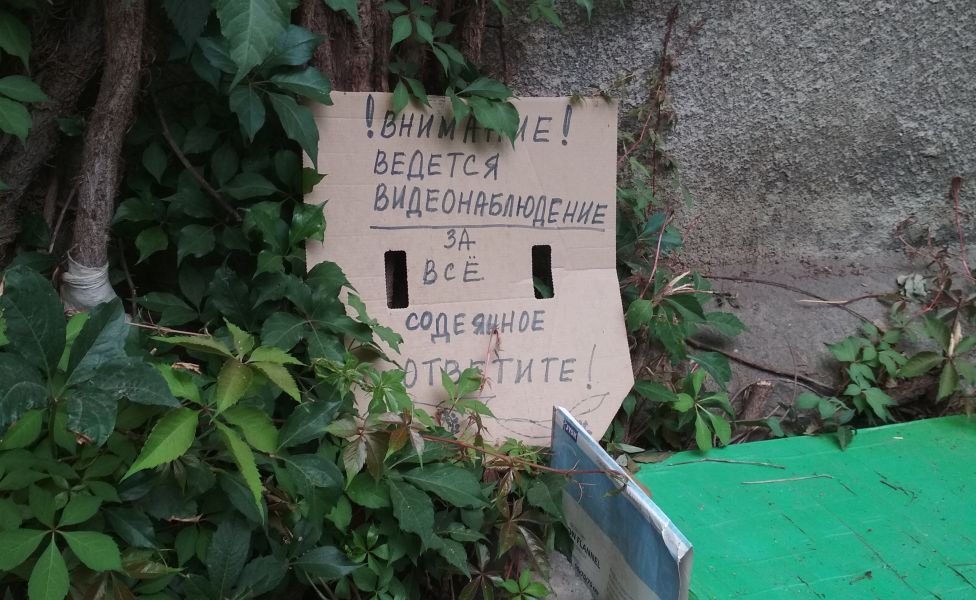 !ВНИМАНИЕ!
ВЕДЕТСЯ
ВИДЕОНАБЛЮДЕНИЕ
ЗА
ВСЁ
СОДЕЯННОЕ
ОТВЕТИТЕ!
FLANNEL